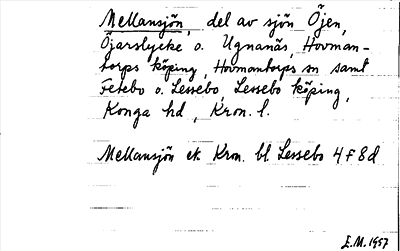 Mellansjön, del av sjön Öjen,
Öjarslycke o. Ugnanäs, Hovman-
torps köping, Hovmantorps sn samt
Fetebo o. Lessebo, Lessebo köping,
Konga hd, Kron. l.
Mellansjön ek Kron. bl. Lessebo 4F8d
E.M. 1957